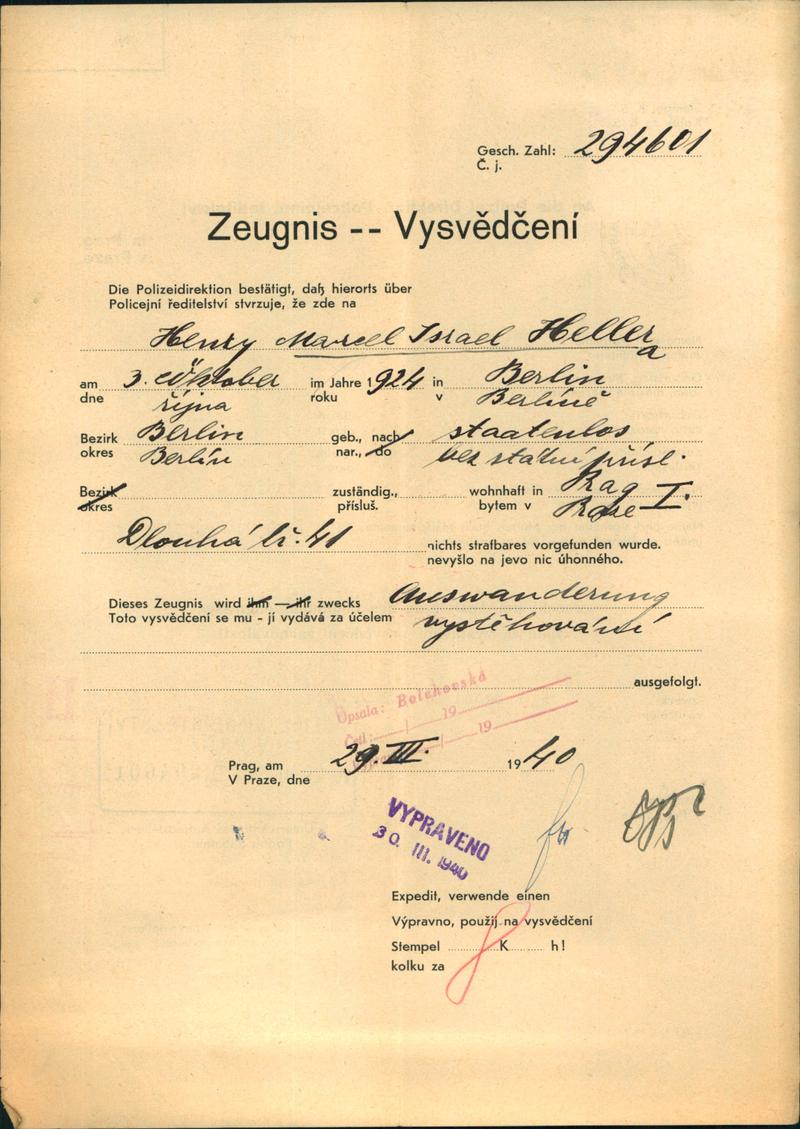 Gesch. Zahl: 294601
Č. j.
Zeugnis -- Vysvědčení
Die Polizeidirektion bestätigt, daß hierorts über
Policejní ředitelství stvrzuje, že zde na
Henry Marcel Israel Heller
a
am 3. Oktober im Jahre 1924 in Berlin
dne října roku v Berlíně
Bezirk Berlin geb., nach staatenlos
okres Berlín nar., do bez státní přísl.
Bezirk zuständig., wohnhaft in Prag I.
okres přísluš. bytem v Praze
Dlouhá tř. 41 nichts strafbares vorgefunden wurde.
nevyšlo na jevo nic úhonného.
Dieses Zeugnis wird ihm — ihr zwecks Auswanderung
Toto vysvědčení se mu - jí vydává za účelem vystěhování
ausgefolgt.
Opsala: Bolehovská
Četl: 19
19
Prag, am 29. III. 1940
V Praze, dne
VYPRAVENO
30. III. 1940
Expedit, verwende einen
Výpravno, použij na vysvědčení
Stempel K h!
kolku za